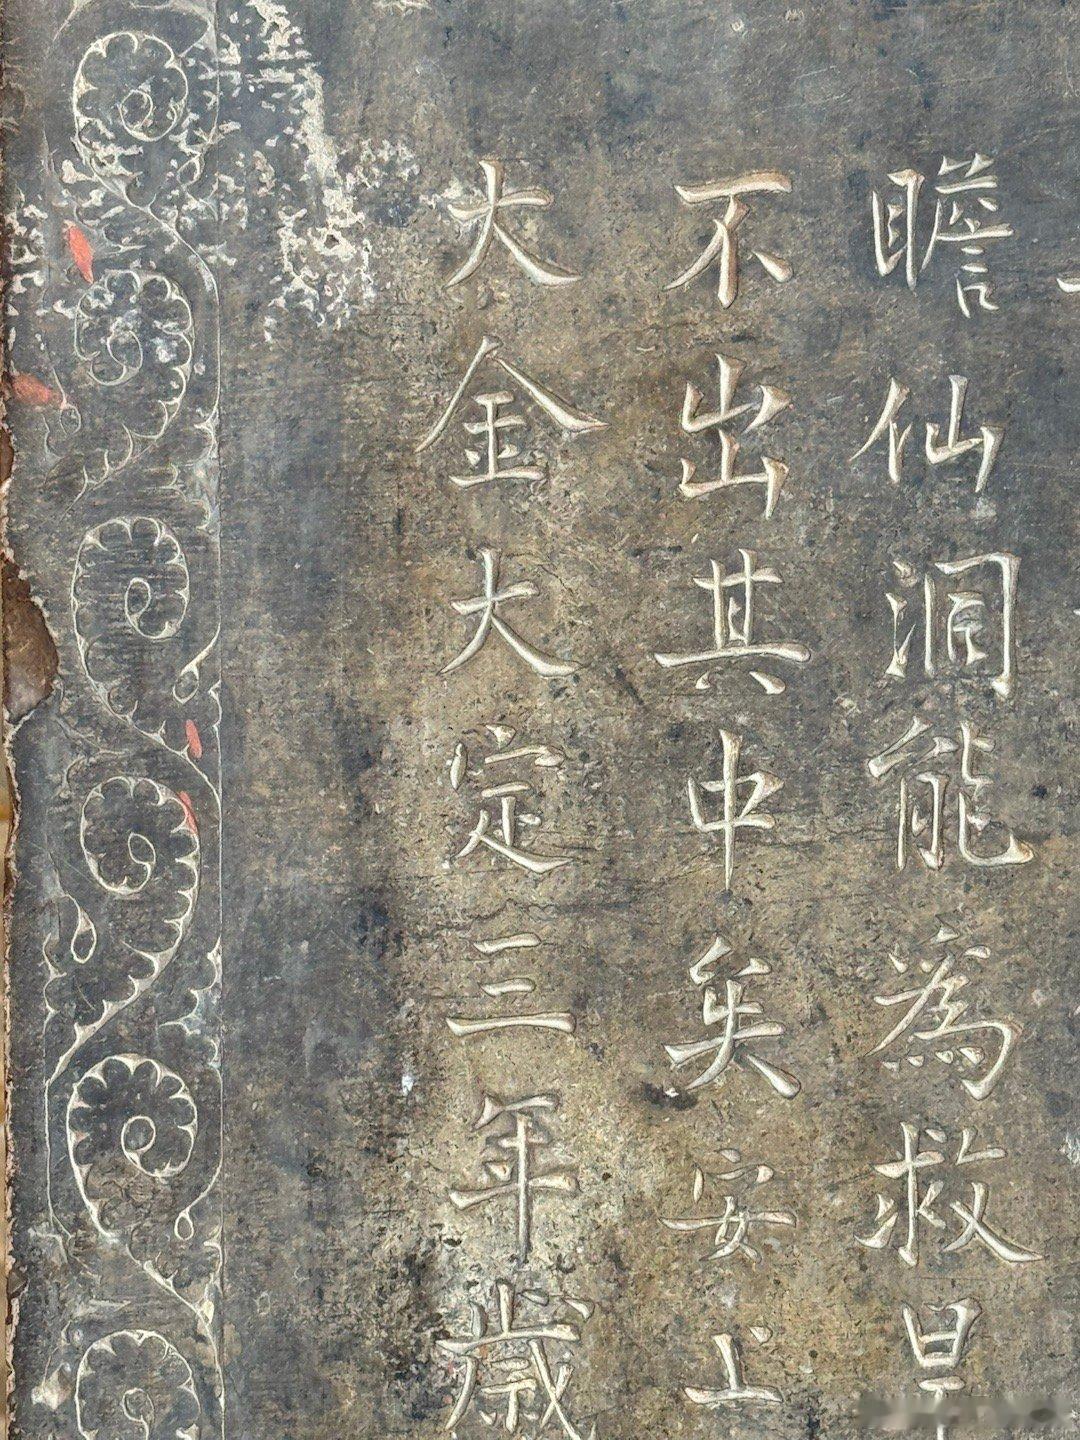 瞻仙洞能為救旱
不出其中矣安上
大金大定三年歲